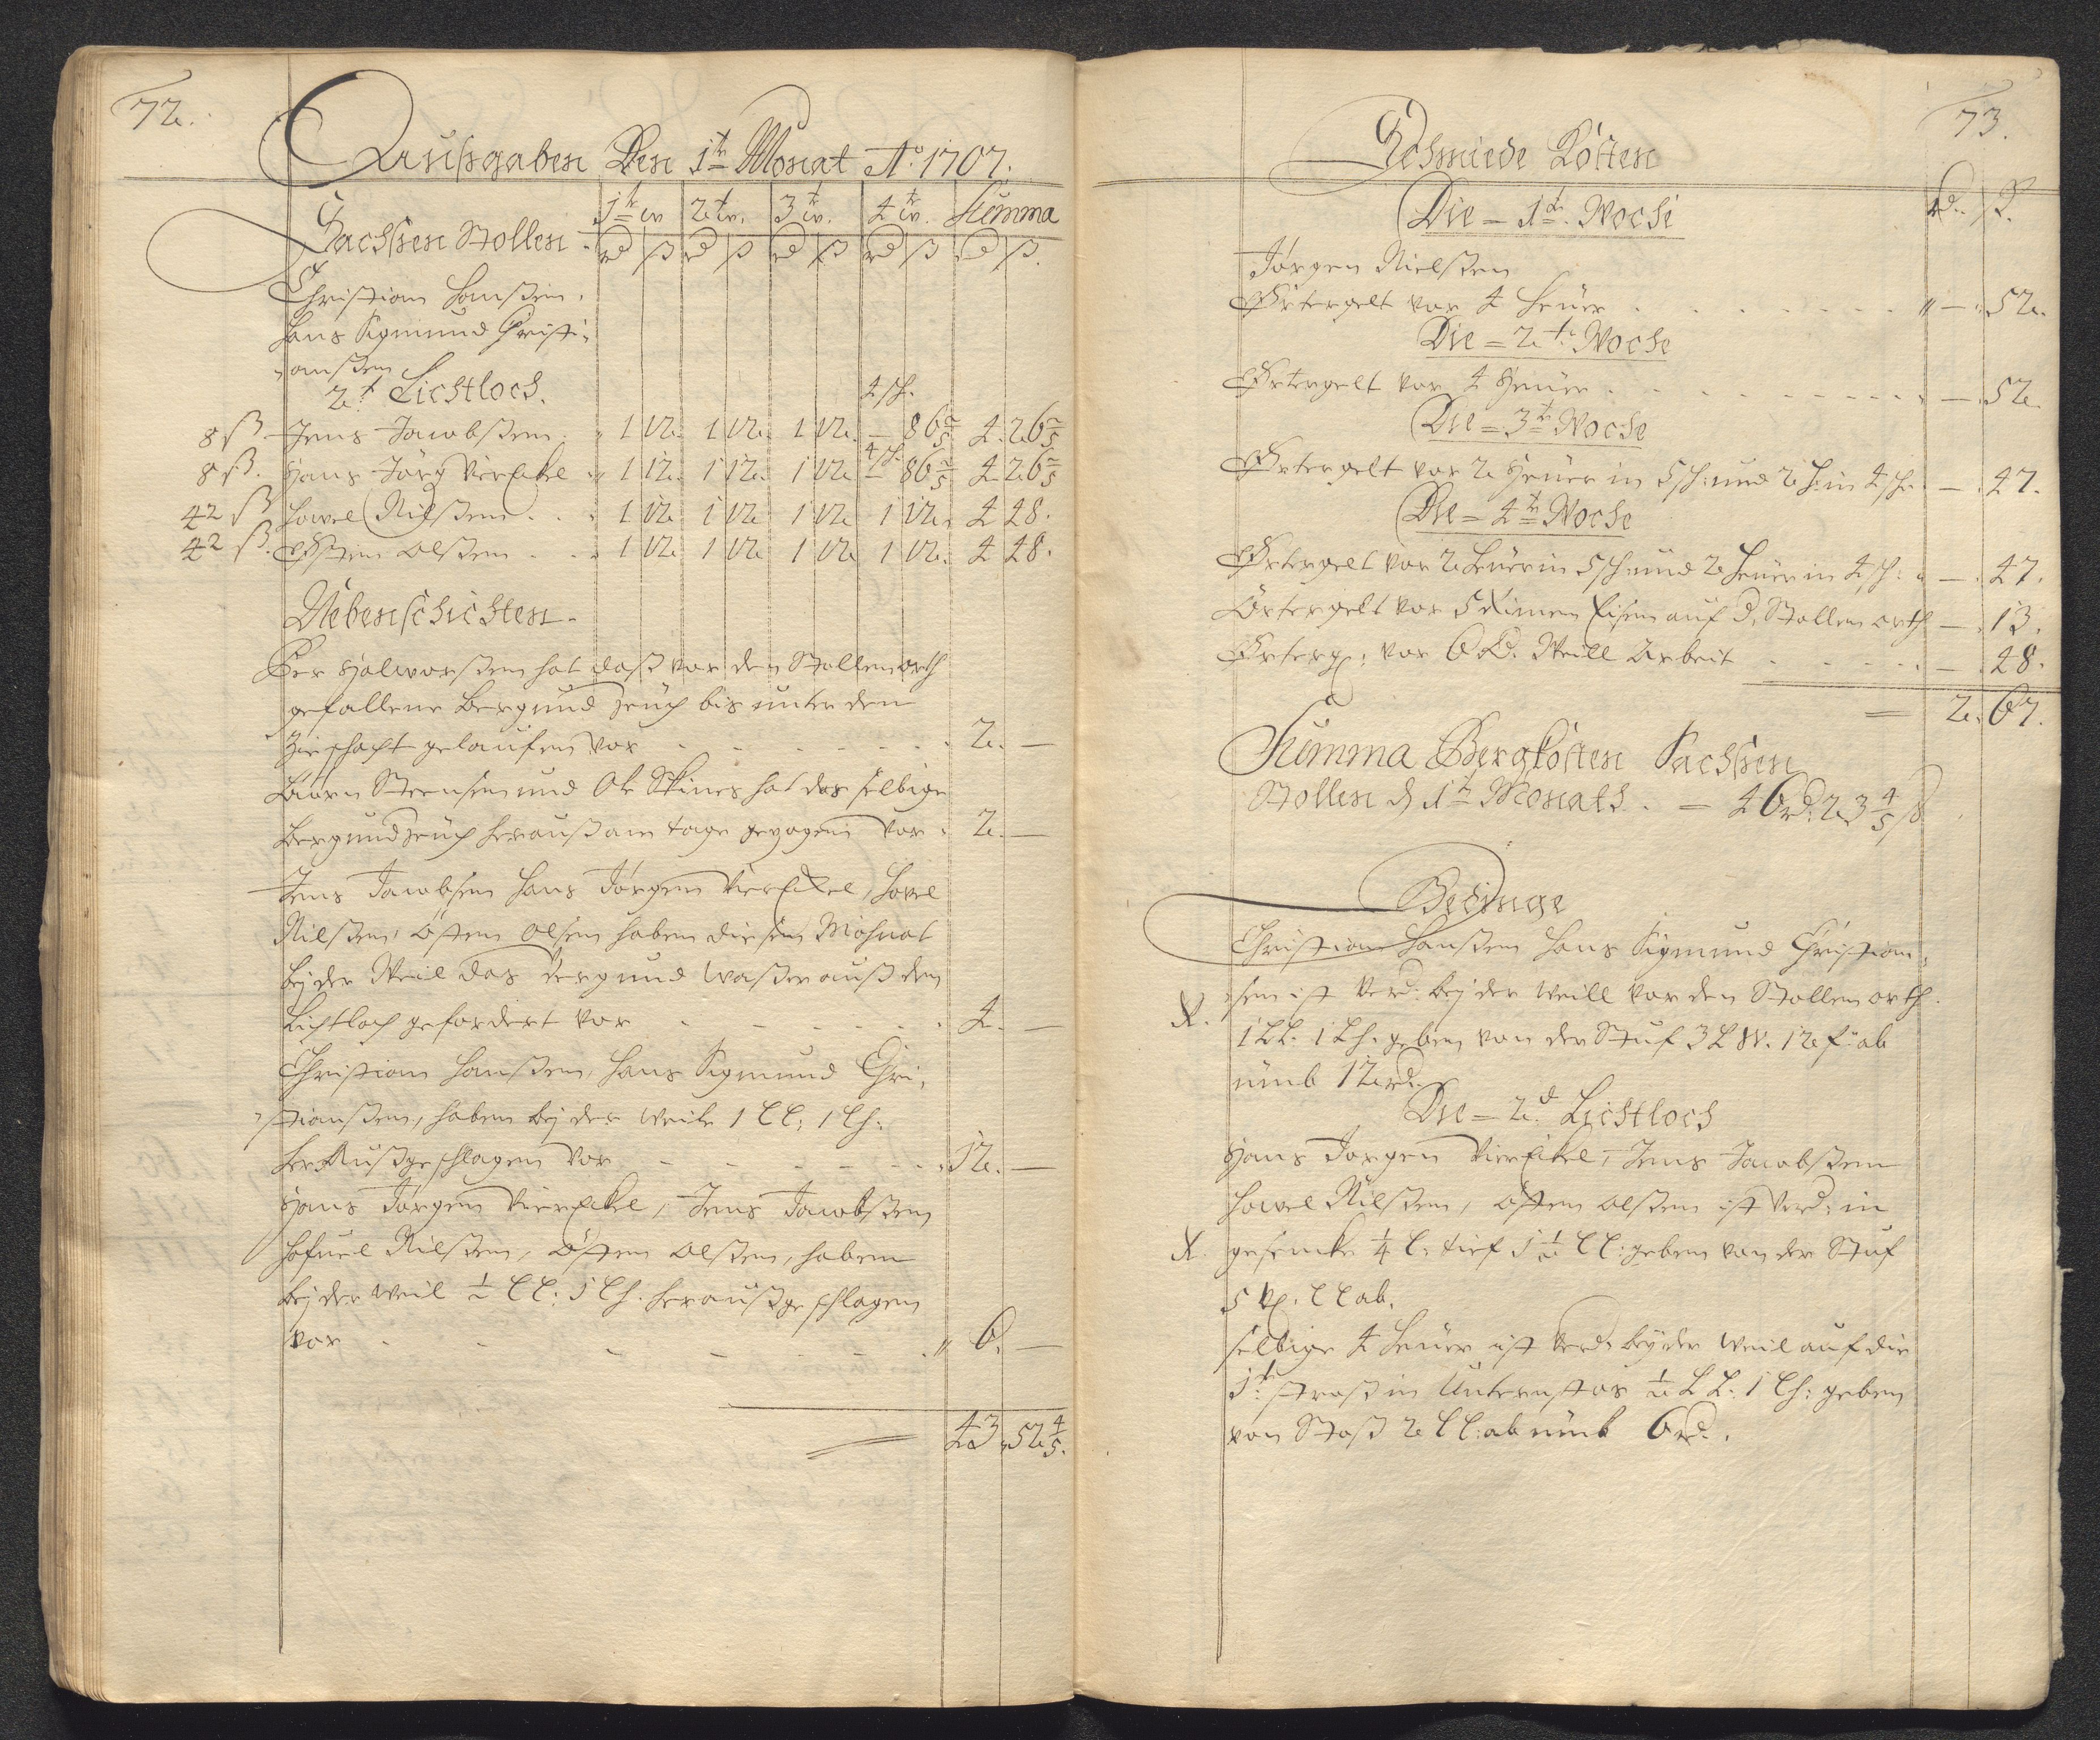 72.
Aussgaben Den 1t Monat Ao. 1707.
Sachssen Stollen.
1t w 2t w. 3t w. 4t w. Summa
rd ß rd ß rd ß rd ß rd ß.
Christian Hanßen,
Hans Sigmund Christi-
-anßen
2t Lichtloch.
4 sch.
8 ß Jens Jacobßen 1 12. 1 12. 1 12. — 86 2/5 4. 26 2/5
4 sch.
8 ß. Hans Jörg VierEckel 1 12. 1 12. 1 12 — 86 2/5 4 26 2/5
42 ß Howel Nilßen . . 1 12 1 12 1 12 1 12. 4 48.
42 ß. Östen Olßen . . 1 12 1 12 1 12 1 12. 4 48.
Nebenschichten.
Per Halworßen hat daß vor den Stollenorth
gefallene Bergund Zeüch bis unter dem
Ziehschacht gelaufen vor . . . 2. —
Biörn Steensen und Ole Skines hat das selbige
Bergundzeüch herauß am tage gezogen vor . 2. —
Jens Jacobsen Hans Jörgen VierEckel, Howel
Nilßen, Östen Olsen haben diesen Mohnat
bej der Weil das Bergund Waßer auß den
Lichtloch gefordert vor . . . 4. —
Christian Hanßen, Hans Sigmund Chri-
-stianßen, haben bej der Weile 1 LL: 1 Lh:
her Außgeschlagen vor . . . 12. —
Hans Jörgen VierEckel, Jens Jacobßen
Hofuel Nilßen, Östen Olßen, haben
bej der Weil 1/2 LL: 1 Lh. heraußgeschlagen
vor . . . 6. —
43 52 4/5.
73.
Schmiede Kosten
rd. ß.
Die = 1t. Woche
Jörgen Nielßen
Örtergelt vor 4 Heüer . . . — 52.
Die = 2t. Woche
Örtergelt vor 4 Heüer . . . — 52.
Die = 3t Woche
Örtergelt vor 2 Heüer in 5 sch: und 2 H: in 4 sch. — 47.
Die = 4t Woche
Örtergelt vor 2 Heüer in 5 sch: und 2 Heüer in 4 sch: — 47.
Örtergelt vor 5 Riemen Eisen auf d. Stollen orth — 13.
Örterg: vor 6 rd. Weill Arbeit . . . — 28.
= 2. 67.
Summa Bergkosten Sachssen
Stollen d 1t Monats. — 46 rd: 23 4/5 ß
Gedinge
Christian Hanßen Hans Sigmund Christian-
X. sen ist Verd: bej der Weill vor den Stollen orth.
1 LL. 1 Lh. geben von der Stuf 3 L W. 12 f: ab
umb 12 rd.
Die = 2d. Lichtloch
Hans Jörgen VierEckel, Jens Jacobßen
Howel Nilßen, Östen Olßen ist Verd: in
X. gesencke 1/4 L: tief 1 1/2 LL: geben von der Stuf
5 LL ab.
selbige 4 Heüer ist Verd. bej der Weil auf die
1t. straß in Unternstos 1/2 LL: 1 Lh: geben
von Stoß 2 LL: ab umb 6 rd.